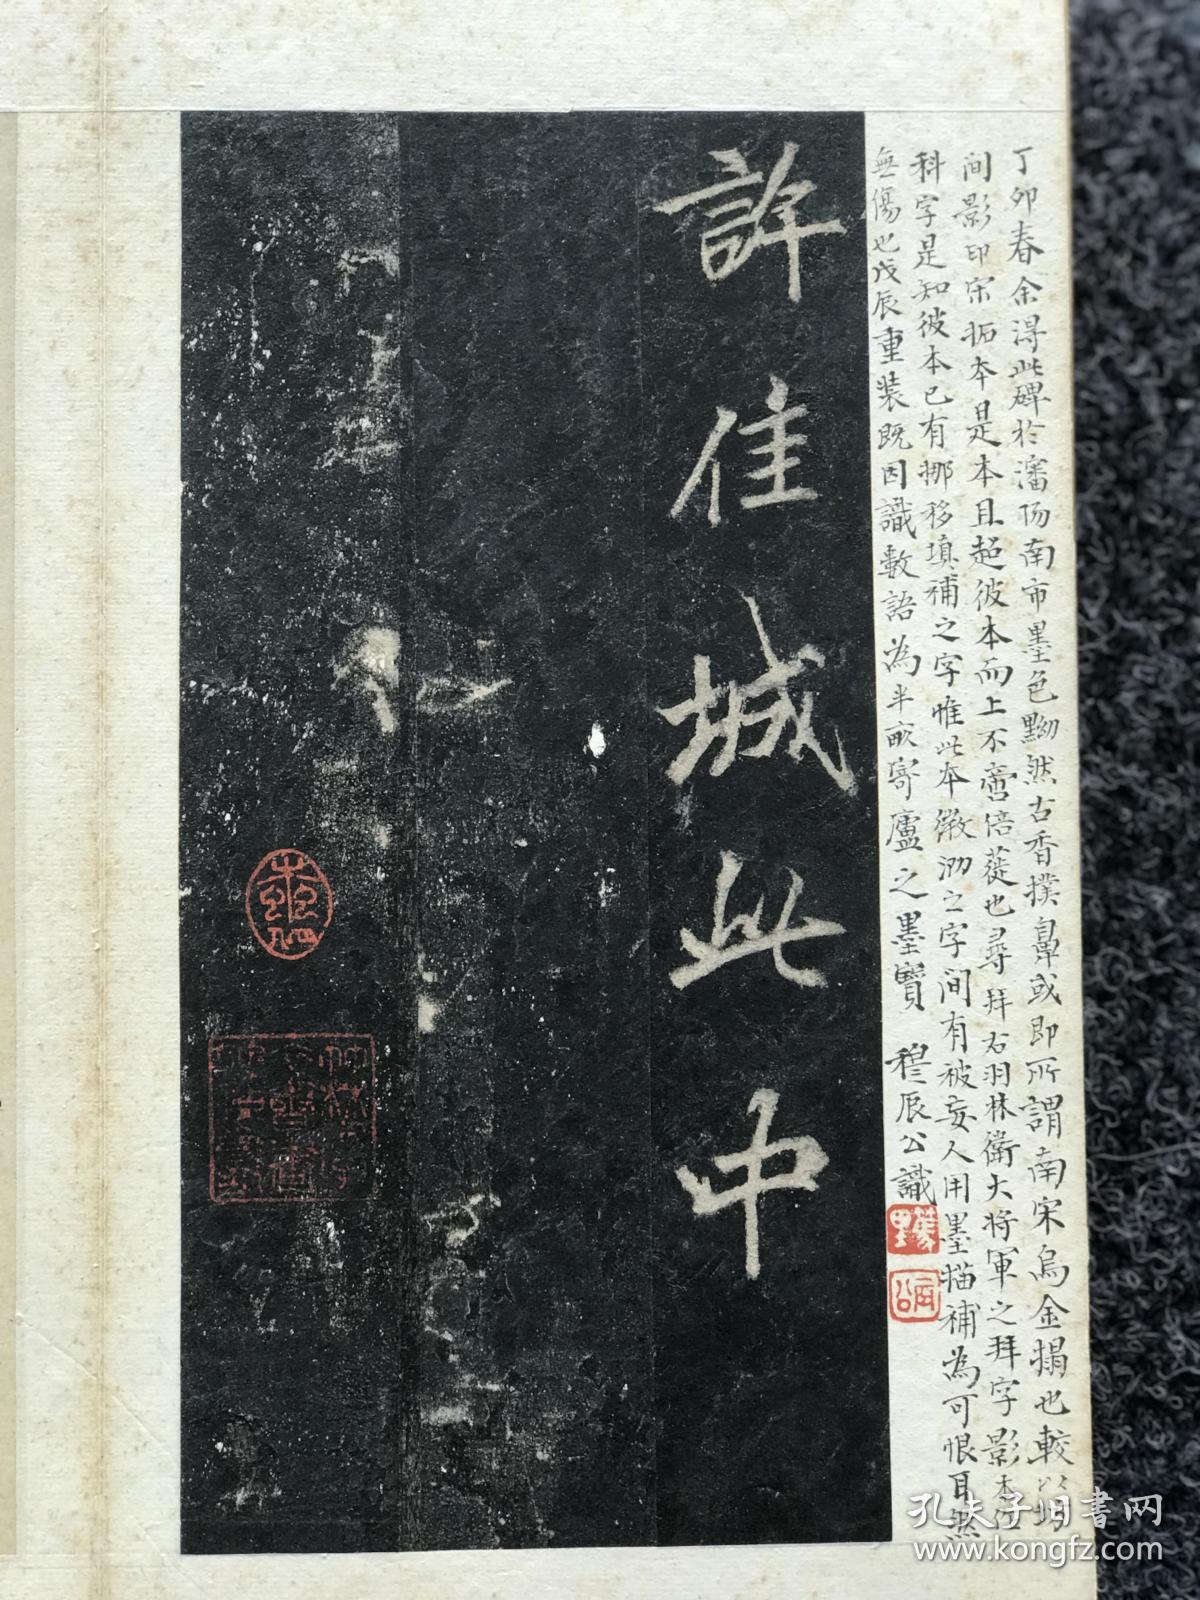 丁卯春余得此碑於瀋陽南市墨色黝然古香撲鼻或即所謂南宋烏金搨也較以坊
间影印宋拓本是本且超彼本而上不啻倍蓰也尋拜右羽林衛大將軍之拜字影本作
科字是知彼本已有挪移填補之字惟此本微泐之字间有被妄人用墨描補為可恨耳然
無傷也戊辰重装既因識數語為半畝寄廬之墨寶 穆辰公識
辰公
許佳城此中
孔夫子旧书网
www.kongfz.com